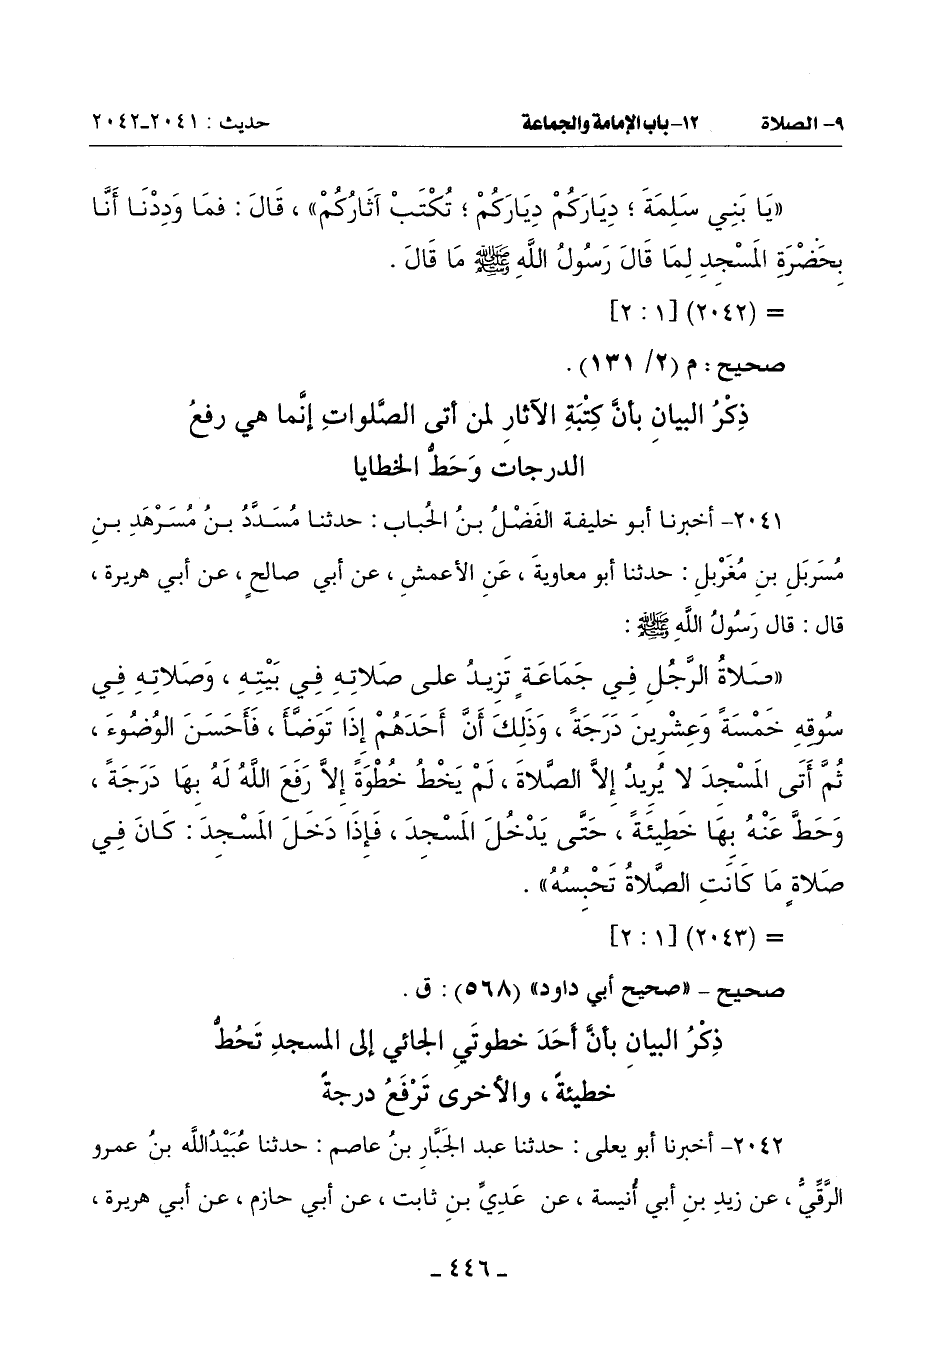 ٩- الصلاة ١٢-باب الإمامة والجماعة حديث : ٢٠٤١-٢٠٤٢
«يَا بَنِي سَلِمَةَ ؛ دِيَارَكُمْ دِيَارَكُمْ ؛ تُكْتَبْ آثَارُكُمْ» ، قَالَ : فمَا وَدِدْنَا أَنَّا
بِحَضْرَةِ المَسْجِدِ لِمَا قَالَ رَسُولُ اللَّهِ ﷺ مَا قَالَ .
= (٢٠٤٢) [١ : ٢]
صحيح : م (٢/ ١٣١) .
ذِكْرُ البيانِ بأنَّ كِتْبَةِ الآثارِ لمن أتى الصَّلواتِ إنَّما هي رفعُ
الدرجات وَحَطُّ الخطايا
٢٠٤١- أخبرنا أبو خليفة الفَضْلُ بنُ الحُباب : حدثنا مُسَدَّدُ بـنُ مُسَـرْهَدِ بـنِ
مُسَربَلِ بنِ مُغَرْبَلِ : حدثنا أبو معاويةَ ، عَنِ الأعمش ، عن أبي صالحٍ ، عن أبي هريرة ،
قال : قال رَسُولُ اللَّهِ ﷺ :
«صَـلاةُ الرَّجُلِ فِـي جَمَاعَـةٍ تَزِيـدُ علـى صَلاتِـهِ فِـي بَيْتِـهِ ، وَصَلاتِـهِ فِـي
سُوقِهِ خَمْسَةً وَعِشْرِينَ دَرَجَةً ، وَذَلِكَ أَنَّ أَحَدَهُمْ إِذَا تَوَضَّأَ ، فَأَحْسَنَ الوُضُوءَ ،
ثُمَّ أَتَى المَسْجِدَ لا يُرِيدُ إلاَّ الصَّلاةَ ، لَمْ يَخْطُ خُطْوَةً إلاَّ رَفَعَ اللَّهُ لَهُ بِهَا دَرَجَةً ،
وَحَطَّ عَنْهُ بِهَا خَطِيئَةً ، حَتَّى يَدْخُلَ المَسْجِدَ ، فَإِذَا دَخَلَ المَسْجِدَ : كَانَ فِي
صَلاةٍ مَا كَانَتِ الصَّلاةُ تَحْبِسُهُ» .
= (٢٠٤٣) [١ : ٢]
صحيح - «صحيح أبي داود» (٥٦٨) : ق .
ذِكْرُ البيانِ بأنَّ أَحَدَ خطوتَي الجائي إلى المسجدِ تَحُطُّ
خطيئةً ، والأخرى تَرْفَعُ درجةً
٢٠٤٢- أخبرنا أبو يعلى : حدثنا عبد الجَبَّار بنُ عاصم : حدثنا عُبَيْدُاللَّه بنُ عمرو
الرَّقِّيُّ ، عن زيدِ بنِ أبي أُنيسة ، عن عَديِّ بنِ ثابت ، عن أبي حازم ، عن أبي هريرة ،
- ٤٤٦ -